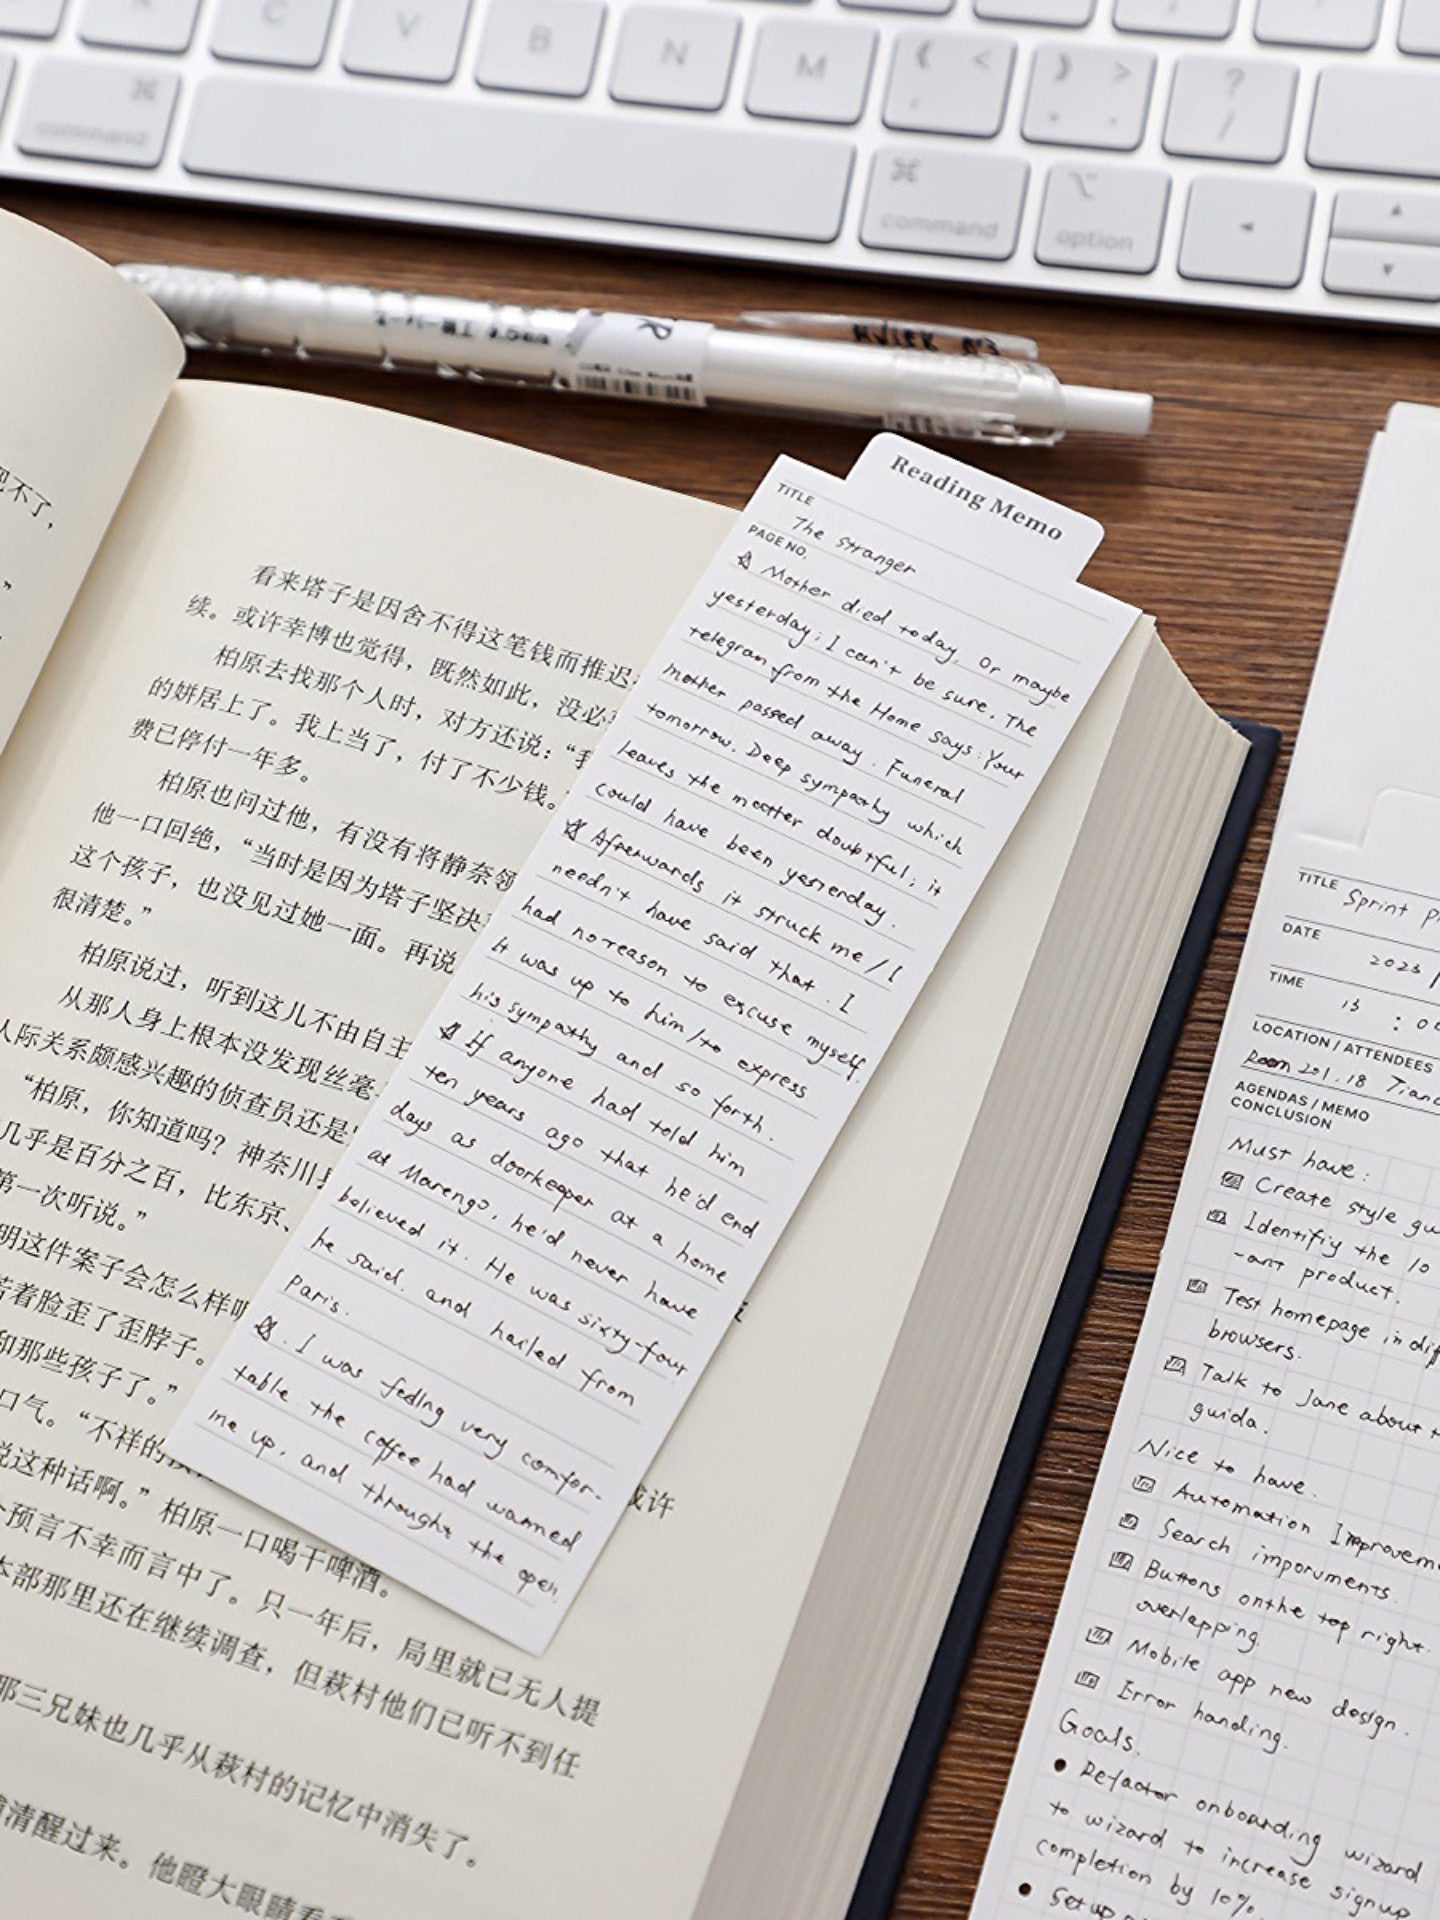 C
V
B
N
M
<
>
?
/
command
command
option
不了，
”
看来塔子是因舍不得这笔钱而推迟
续。或许幸博也觉得，既然如此，没必
柏原去找那个人时，对方还说：“我
的姘居上了。我上当了，付了不少钱。
费已停付一年多。
柏原也问过他，有没有将静奈领
他一口回绝，“当时是因为塔子坚决
这个孩子，也没见过她一面。再说
很清楚。”
柏原说过，听到这儿不由自主
从那人身上根本没发现丝毫
人际关系颇感兴趣的侦查员还是
“柏原，你知道吗？神奈川县
几乎是百分之百，比东京、
第一次听说。”
明这件案子会怎么样呢
苦着脸歪了歪脖子。
和那些孩子了。”
口气。“不祥的
或许
说这种话啊。”柏原一口喝干啤酒。
个预言不幸而言中了。只一年后，局里就已无人提
本部那里还在继续调查，但萩村他们已听不到任
那三兄妹也几乎从萩村的记忆中消失了。
清醒过来。他瞪大眼睛看
Reading Memo
TITLE
The stranger
PAGE NO.
Mother died today. Or maybe
yesterday; I can't be sure. The
telegran from the Home says: Your
mother passed away. Funeral
tomorrow. Deep sympathy which
leaves the matter doubtful; it
could have been yesterday.
Afterwards it struck me / I
needn't have said that. I
had no reason to excuse myself.
it was up to him / to express
his sympathy and so forth.
If anyone had told him
ten years ago that he'd end
days as doorkeeper at a home
at Marengo, he'd never have
believed it. He was sixty-four
he said. and hailed from
Paris.
. I was feeling very comfor-
table the coffee had warmed
me up, and throught the open
TITLE Sprint
DATE
2023 /
TIME
13 : 00
LOCATION / ATTENDEES
Room 201. 18
AGENDAS / MEMO
CONCLUSION
Must have:
Create style
Identifiy the 10
-ant product.
Test homepage in
browsers.
Talk to Jane about
guida.
Nice to have.
Automation
Search imporuments.
Buttons on the top right.
overlapping.
Mobile app new design.
Error handing.
Goals.
Refactor onboarding wizard
to wizard to increase signup
completion by 10%.
Set up